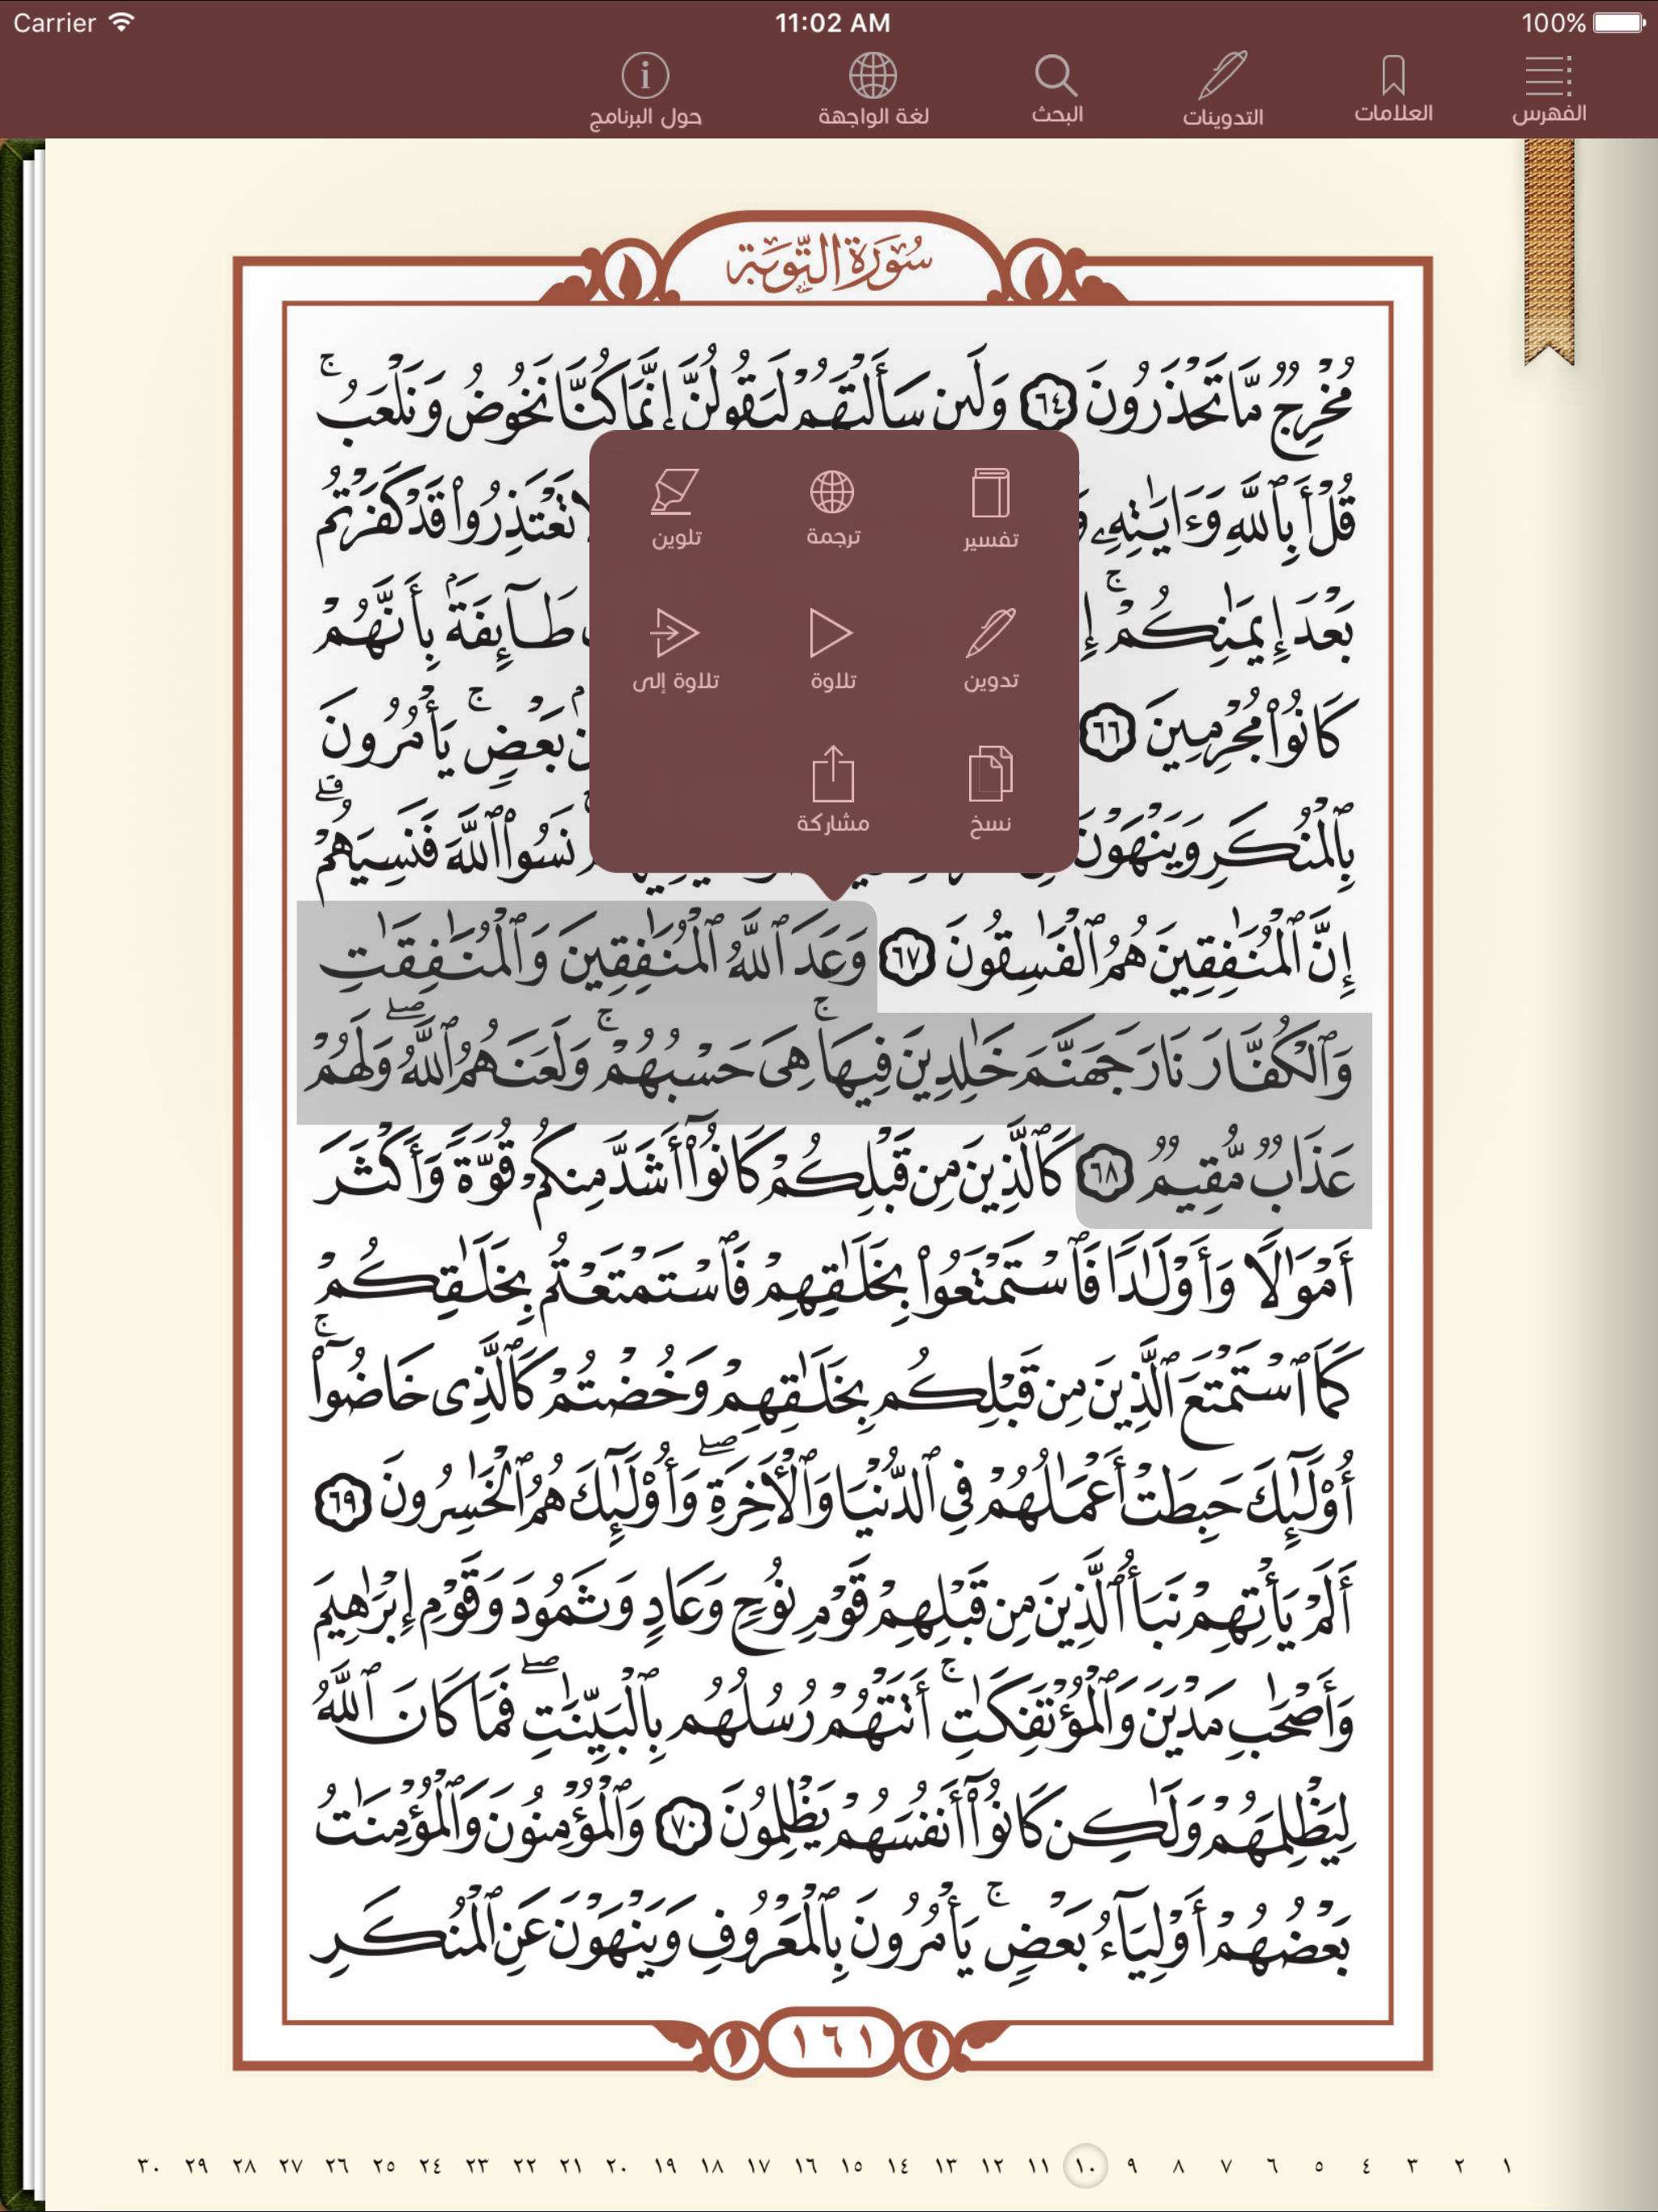 Carrier 11:02 AM 100%
الفهرس العلامات التدوينات البحث لغة الواجهة حول البرنامج
سُورَةُ التَّوْبَةِ
مُخْرِجٌ مَّا تَحْذَرُونَ ٦٤ وَلَئِن سَأَلْتَهُمْ لَيَقُولُنَّ إِنَّمَا كُنَّا نَخُوضُ وَنَلْعَبُ ۚ
قُلْ أَبِٱللَّهِ وَءَايَٰتِهِۦ تَعْتَذِرُوا۟ قَدْ كَفَرْتُم
بَعْدَ إِيمَٰنِكُمْ ۚ طَآئِفَةًۢ بِأَنَّهُمْ
كَانُوا۟ مُجْرِمِينَ ٦٦ بَعْضٍ ۚ يَأْمُرُونَ
بِٱلْمُنكَرِ وَيَنْهَوْنَ نَسُوا۟ ٱللَّهَ فَنَسِيَهُمْ ۗ
إِنَّ ٱلْمُنَٰفِقِينَ هُمُ ٱلْفَٰسِقُونَ ٦٧ وَعَدَ ٱللَّهُ ٱلْمُنَٰفِقِينَ وَٱلْمُنَٰفِقَٰتِ
وَٱلْكُفَّارَ نَارَ جَهَنَّمَ خَٰلِدِينَ فِيهَا ۚ هِىَ حَسْبُهُمْ ۚ وَلَعَنَهُمُ ٱللَّهُ ۖ وَلَهُمْ
عَذَابٌ مُّقِيمٌ ٦٨ كَٱلَّذِينَ مِن قَبْلِكُمْ كَانُوٓا۟ أَشَدَّ مِنكُمْ قُوَّةً وَأَكْثَرَ
أَمْوَٰلًا وَأَوْلَٰدًا فَٱسْتَمْتَعُوا۟ بِخَلَٰقِهِمْ فَٱسْتَمْتَعْتُم بِخَلَٰقِكُمْ
كَمَا ٱسْتَمْتَعَ ٱلَّذِينَ مِن قَبْلِكُم بِخَلَٰقِهِمْ وَخُضْتُمْ كَٱلَّذِى خَاضُوٓا۟ ۚ
أُو۟لَٰٓئِكَ حَبِطَتْ أَعْمَٰلُهُمْ فِى ٱلدُّنْيَا وَٱلْءَاخِرَةِ ۖ وَأُو۟لَٰٓئِكَ هُمُ ٱلْخَٰسِرُونَ ٦٩
أَلَمْ يَأْتِهِمْ نَبَأُ ٱلَّذِينَ مِن قَبْلِهِمْ قَوْمِ نُوحٍ وَعَادٍ وَثَمُودَ وَقَوْمِ إِبْرَٰهِيمَ
وَأَصْحَٰبِ مَدْيَنَ وَٱلْمُؤْتَفِكَٰتِ ۚ أَتَتْهُمْ رُسُلُهُم بِٱلْبَيِّنَٰتِ ۖ فَمَا كَانَ ٱللَّهُ
لِيَظْلِمَهُمْ وَلَٰكِن كَانُوٓا۟ أَنفُسَهُمْ يَظْلِمُونَ ٧٠ وَٱلْمُؤْمِنُونَ وَٱلْمُؤْمِنَٰتُ
بَعْضُهُمْ أَوْلِيَآءُ بَعْضٍ ۚ يَأْمُرُونَ بِٱلْمَعْرُوفِ وَيَنْهَوْنَ عَنِ ٱلْمُنكَرِ
تفسير ترجمة تلوين
تدوين تلاوة تلاوة إلى
نسخ مشاركة
١٦١
١ ٢ ٣ ٤ ٥ ٦ ٧ ٨ ٩ ١٠ ١١ ١٢ ١٣ ١٤ ١٥ ١٦ ١٧ ١٨ ١٩ ٢٠ ٢١ ٢٢ ٢٣ ٢٤ ٢٥ ٢٦ ٢٧ ٢٨ ٢٩ ٣٠